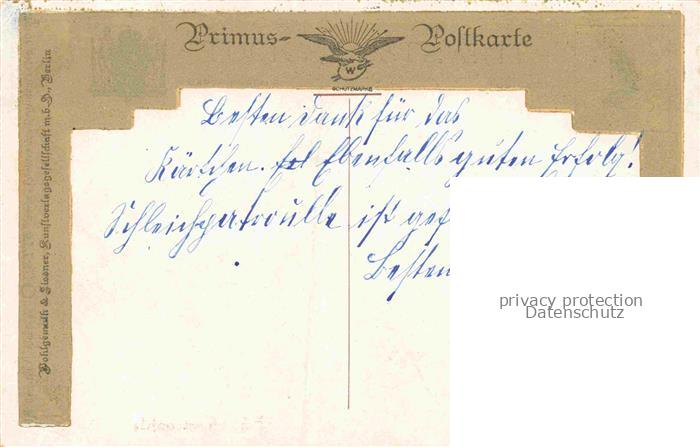 Primus- Postkarte
W
SCHUTZMARKE
Wohlgemuth & Lissner, Kunstverlagsgesellschaft m.b.H., Berlin
Besten Dank für das
Kärtchen. Ebenfalls guten Erfolg!
Schleichpatroulle ist gef
Besten
privacy protection
Datenschutz